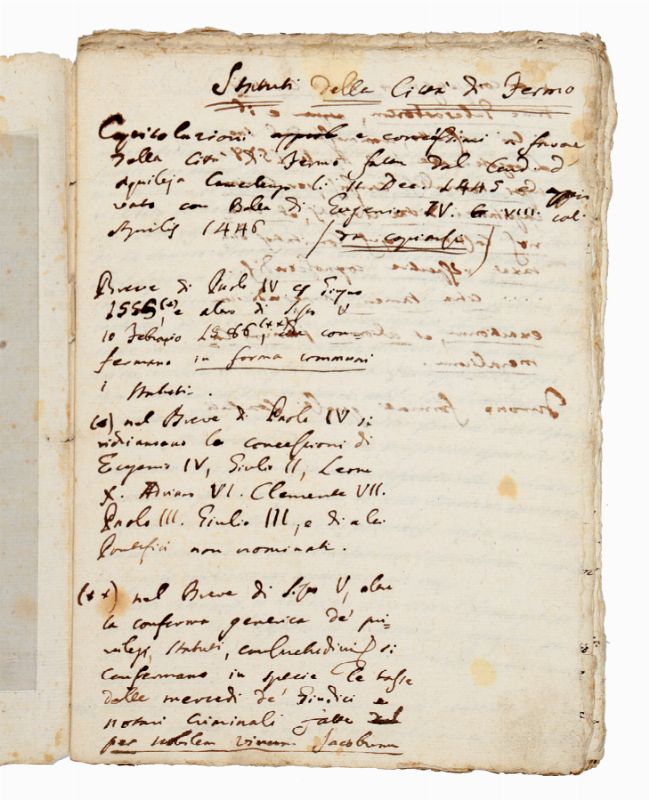 Statuti della Città di Fermo
Capitolazioni e concessioni a favore
della Città Fermo fatta dal Card d'
Aquileja Camerlengo li 11 Dec. 1445 appro
vato con Bolla di Eugenio IV VIII. cal.
Aprilis 1446 (da copiarsi)
Breve di Paolo IV Giugno
1555 (*), e altro di Sisto V
10 Febraio 1586, (**) con
fermano in forma communi
i statuti.
(*) nel Breve di Paolo IV si
richiamano le concessioni di
Eugenio IV, Giulio II, Leone
X. Adriano VI. Clemente VII.
Paolo III. Giulio III, e di altri
Pontefici non nominati.
(**) nel Breve di Sisto V, oltre
la conferma generica de' pri=
vilegj, statuti, consuetudini si
confermano in specie le tasse
delle mercedi de' Giudici e
notari criminali fatte
per nobilem virum Jacobum